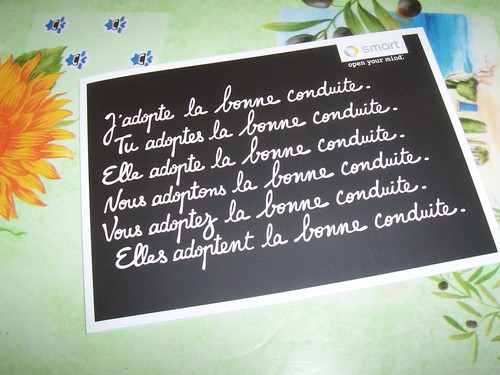 smart
open your mind.
J'adopte la bonne conduite.
Tu adoptes la bonne conduite.
Elle adopte la bonne conduite.
Nous adoptons la bonne conduite.
Vous adoptez la bonne conduite.
Elles adoptent la bonne conduite.